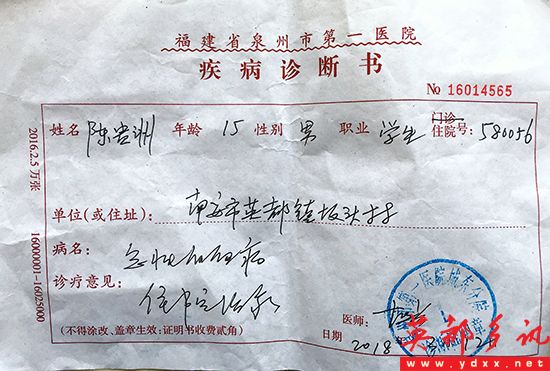 福建省泉州市第一医院
疾病诊断书
No 16014565
姓名 陈 洲 年龄 15 性别 男 职业 学生 门诊 住院号: 580056
单位(或住址): 南安市英都镇坂头村
病名: 急性白血病
诊疗意见: 住院治疗
医师:
(不得涂改、盖章生效:证明书收费贰角) 日期 2018
2016.2.5万张 16000001-16025000
英都多讯
www.ydxx.net